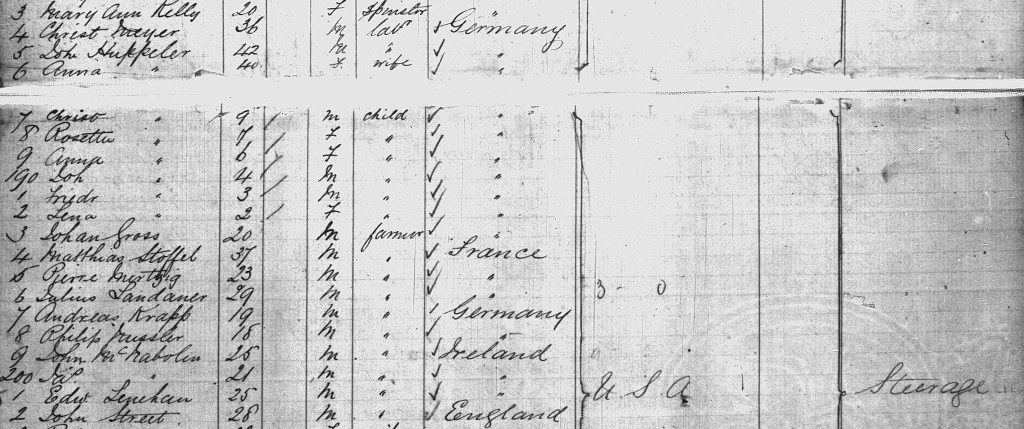 3 Mary Ann Kelly 20 F Spinster
4 Christ Meyer 36 M labr ✓ Germany
5 Joh Huppeler 42 M " ✓ "
6 Anna " 40 F wife ✓ "
7 Christ " 9 / m child ✓ "
8 Rosetta " 7 / F " ✓ "
9 Anna " 6 / F " ✓ "
190 Joh " 4 / M " ✓ "
1 Friedr " 3 / M " ✓ "
2 Lena " 2 / F " ✓ "
3 Johan Gross 20 M farmer ✓ "
4 Matthias Stoffel 37 M " ✓ France
5 Pierre Mertzig 23 M " ✓ "
6 Julius Landauer 29 M " ✓ " 3 - 0
7 Andreas Krapp 19 M " / Germany
8 Philip 18 M " / "
9 John McNabolin 25 M " ✓ Ireland
200 " 21 M " ✓ "
1 Edw Lenehan 25 M " ✓ " U S A Steerage
2 John Street 28 M " ✓ England